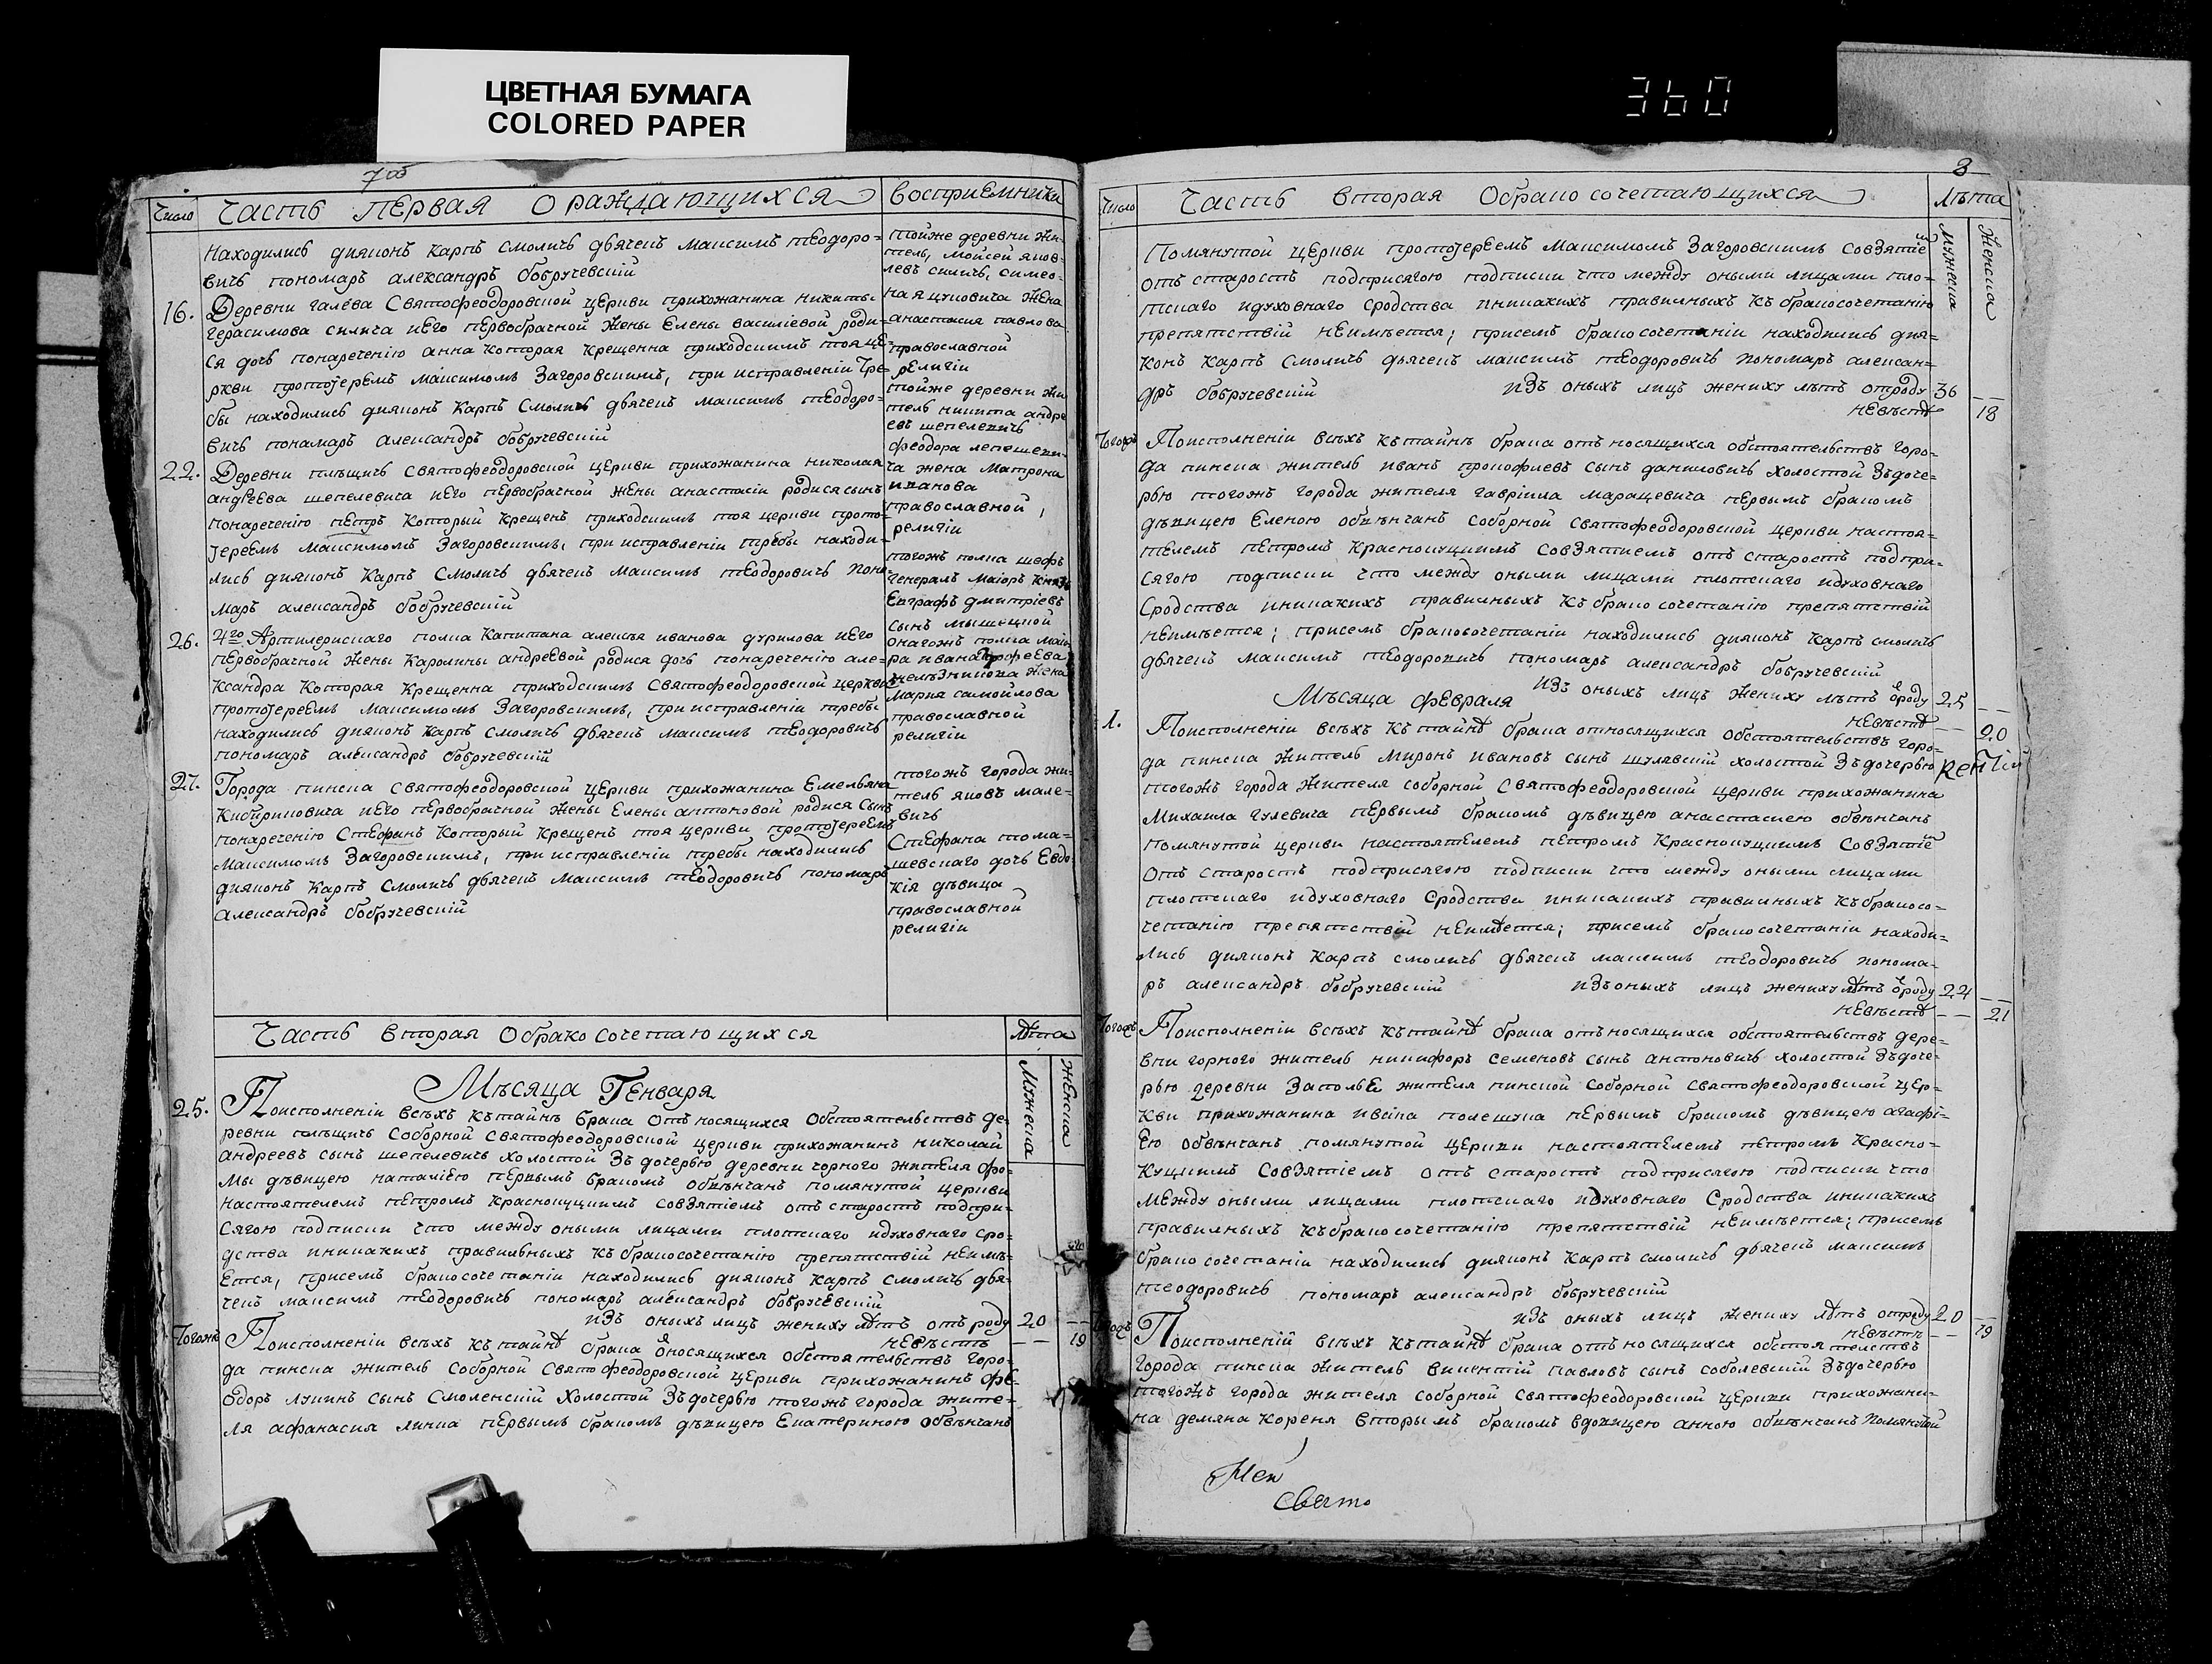 ЦВЕТНАЯ БУМАГА
COLORED PAPER
360
Число
Часть первая о раждающихся
восприемники
находились дияконъ Карпъ Смоличь дьячекъ Максимъ теодоро=
вичь пономаръ александръ бобручевскій
16. Деревни галева Святофеодоровской церкви прихожанина никиты
герасимова силича иего первобрачной жены Елены василіевой роди-
ся дочь понареченію анна Которая Крещенна приходскимъ тояце-
ркви протоіеремъ максимомъ Загоровскимъ, при исправленіи тре-
бы находились дияконъ Карпъ Смоличь дьячекъ максимъ теодоро=
вичь пономаръ александръ бобручевскій
22. Деревни плѣщичь святофеодоровской церкви прихожанина николая
андреева шепелевича иего первобрачной жены анастасіи родися сынъ
понареченію петръ Который Крещенъ приходскимъ тоя церкви прото-
іереемъ максимомъ Загоровскимъ, при исправленіи требы находи-
лись дияконъ Карпъ Смоличь дьячекъ максимъ теодоровичь поно-
маръ александръ бобручевскій
26. 4го Артилерискаго полка Капитана алексѣя иванова дурилова иего
первобрачной жены Каролины андреевой родися дочь понареченію але-
ксандра Которая Крещенна приходскимъ святофеодоровской церкви
протоіереемъ максимомъ Загоровскимъ, при исправленіи требы
находились дияконъ Карпъ смоличь дьячекъ максимъ теодоровичь
пономаръ александръ бобручевскій
27. Города пинска святофеодоровской церкви прихожанина Емельяна
иего первобрачной жены Елены антоновой родися Сынъ
понареченію Стефанъ Который Крещенъ тоя церкви протоіереемъ
максимомъ Загоровскимъ, при исправленіи требы находились
дияконъ Карпъ Смоличь дьячекъ максимъ теодоровичь пономаръ
александръ бобручевскій
тойже деревни жи-
тель, мойсей яков-
левъ силичь, симео-
на яцуковича жена
анастасия павлова
православной
религіи
тойже деревни жи
тель никита андре
евъ шепелевичь
феодора лепешеви-
ча жена матрона
иванова
православной,
религіи
тогожъ полка шефъ
генералъ маіоръ Князь
Евграфъ дмитріевъ
сынъ мышецкой
онагожъ полка маіо
ра ивана
жена
мария самойлова
православной
религіи
тогожъ города жи-
тель яковъ мале-
вичь
Стефана тома=
шевскаго дочь Евдо
кія дѣвица
православной
религіи
Часть вторая обрако сочетающихся
лѣта
Мужеска
женска
Мѣсяца Генваря
25. Поисполненіи всѣхъ къ тайнѣ брака отъ носящихся обстоятельствъ де-
ревни плѣщичь соборной святофеодоровской церкви прихожанинъ николай
андреевъ сынъ шепелевичь холостой Зъ дочерью деревни чорного жителя фо-
мы дѣвицею наталіею первымъ бракомъ обвѣнчанъ помянутой церкви
настоятелемъ петромъ Краснокуцкимъ Совзятіемъ отъ старостъ подпри-
сягою подписки что между оными лицами плотскаго идуховнаго сро-
дства иникакихъ правильныхъ къ бракосочетанію препятствій неимѣ-
ется, присемъ бракосочетаніи находились дияконъ карпъ смоличь дья-
чекъ максимъ теодоровичь пономаръ александръ бобручевскій
изъ оныхъ лицъ жениху лѣтъ отъ роду 20 --
невѣстѣ -- 19
Тогожъ Поисполненіи всѣхъ къ тайнѣ брака относящихся обстоятельствъ горо-
да пинска житель соборной святофеодоровской церкви прихожанинъ фе-
одоръ лукинъ сынъ Смоленскій холостой Зъ дочерью тогожъ города жите-
ля афанасия линка первымъ бракомъ дѣвицею Екатериною обвѣнчанъ
3
Число
Часть вторая обрако сочетающихся
лѣта
Мужеска
Женска
Помянутой церкви протоіереемъ максимомъ Загоровскимъ совзятіемъ
отъ старостъ подприсягою подписки что между оными лицами пло-
тскаго идуховнаго сродства иникакихъ правилныхъ къ бракосочетанію
препятствій неимѣется; присемъ бракосочетаніи находились дия-
конъ Карпъ Смоличь дьячекъ максимъ теодоровичь пономаръ алексан-
дръ бобручевскій изъ оныхъ лицъ жениху лѣтъ отроду 36 --
невѣстѣ 18
Тогожъ Поисполненіи всѣхъ къ тайнѣ брака отъ носящихся обстоятельствъ горо-
да пинска житель иванъ прокофиевъ сынъ даниловичь холостой Зъ доче-
рью тогожъ города жителя гавріила марацевича первымъ бракомъ
дѣвицею Еленою обвѣнчанъ соборной святофеодоровской церкви настоя-
телемъ петромъ Краснокуцкимъ совзятиемъ отъ старостъ подпри-
сягою подписки что между оными лицами плотскаго идуховнаго
Сродства иникакихъ правилныхъ къ бракосочетанію препятствій
неимѣется; присемъ бракосочетаніи находились дияконъ карпъ смоличь
дьячекъ максимъ теодоровичь пономаръ александръ бобручевскій
изъ оныхъ лицъ жениху лѣтъ ѿроду 25 --
Мѣсяца февраля
невѣстѣ -- 20
1. Поисполненіи всѣхъ къ тайнѣ брака относящихся обстоятельствъ горо-
да пинска житель миронъ ивановъ сынъ шулявскій холостой Зъ дочерью
тогожъ города жителя соборной святофеодоровской церкви прихожанина
михаила гулевича первымъ бракомъ дѣвицею анастасиею обвѣнчанъ
помянутой церкви настоятелемъ петромъ Краснокуцкимъ совзятіемъ
отъ старостъ подприсягою подписки что между оными лицами
плотскаго идуховнаго Сродства иникакихъ правилныхъ къ бракосо-
четанію препятствій неимѣется; присемъ бракосочетаніи находи-
лись дияконъ Карпъ смоличь дьячекъ максимъ теодоровичь понома-
ръ александръ бобручевскій изъ оныхъ лицъ жениху лѣтъ ѿроду 24 --
невѣстѣ -- 21
Тогожъ Поисполненіи всѣхъ къ тайнѣ брака отъ носящихся обстоятельствъ дере-
вни горного житель никифоръ семеновъ сынъ антоновичь холостой Зъ доче-
рью деревни Заполья жителя пинской соборной святофеодоровской цер-
кви прихожанина полешука первымъ бракомъ дѣвицею агафі-
ею обвѣнчанъ помянутой церкви настоятелемъ петромъ Красно-
куцкимъ Совзятіемъ отъ старостъ подприсягою подписки что
между оными лицами плотскаго идуховнаго Сродства иникакихъ
правилныхъ къ бракосочетанію препятствій неимѣется; присемъ
бракосочетаніи находились дияконъ карпъ смоличь дьячекъ максимъ
теодоровичь пономаръ александръ бобручевскій
изъ оныхъ лицъ жениху лѣтъ отроду 20 --
невѣстѣ -- 19
Тогожъ Поисполненіи всѣхъ къ тайнѣ брака отъ носящихся обстоятелствъ
города пинска житель викентій павловъ сынъ соболевскій Зъ дочерью
тогожъ города жителя соборной святофеодоровской церкви прихожани-
на демяна кореня вторымъ бракомъ вдовицею анною обвѣнчанъ помянутой
Свято